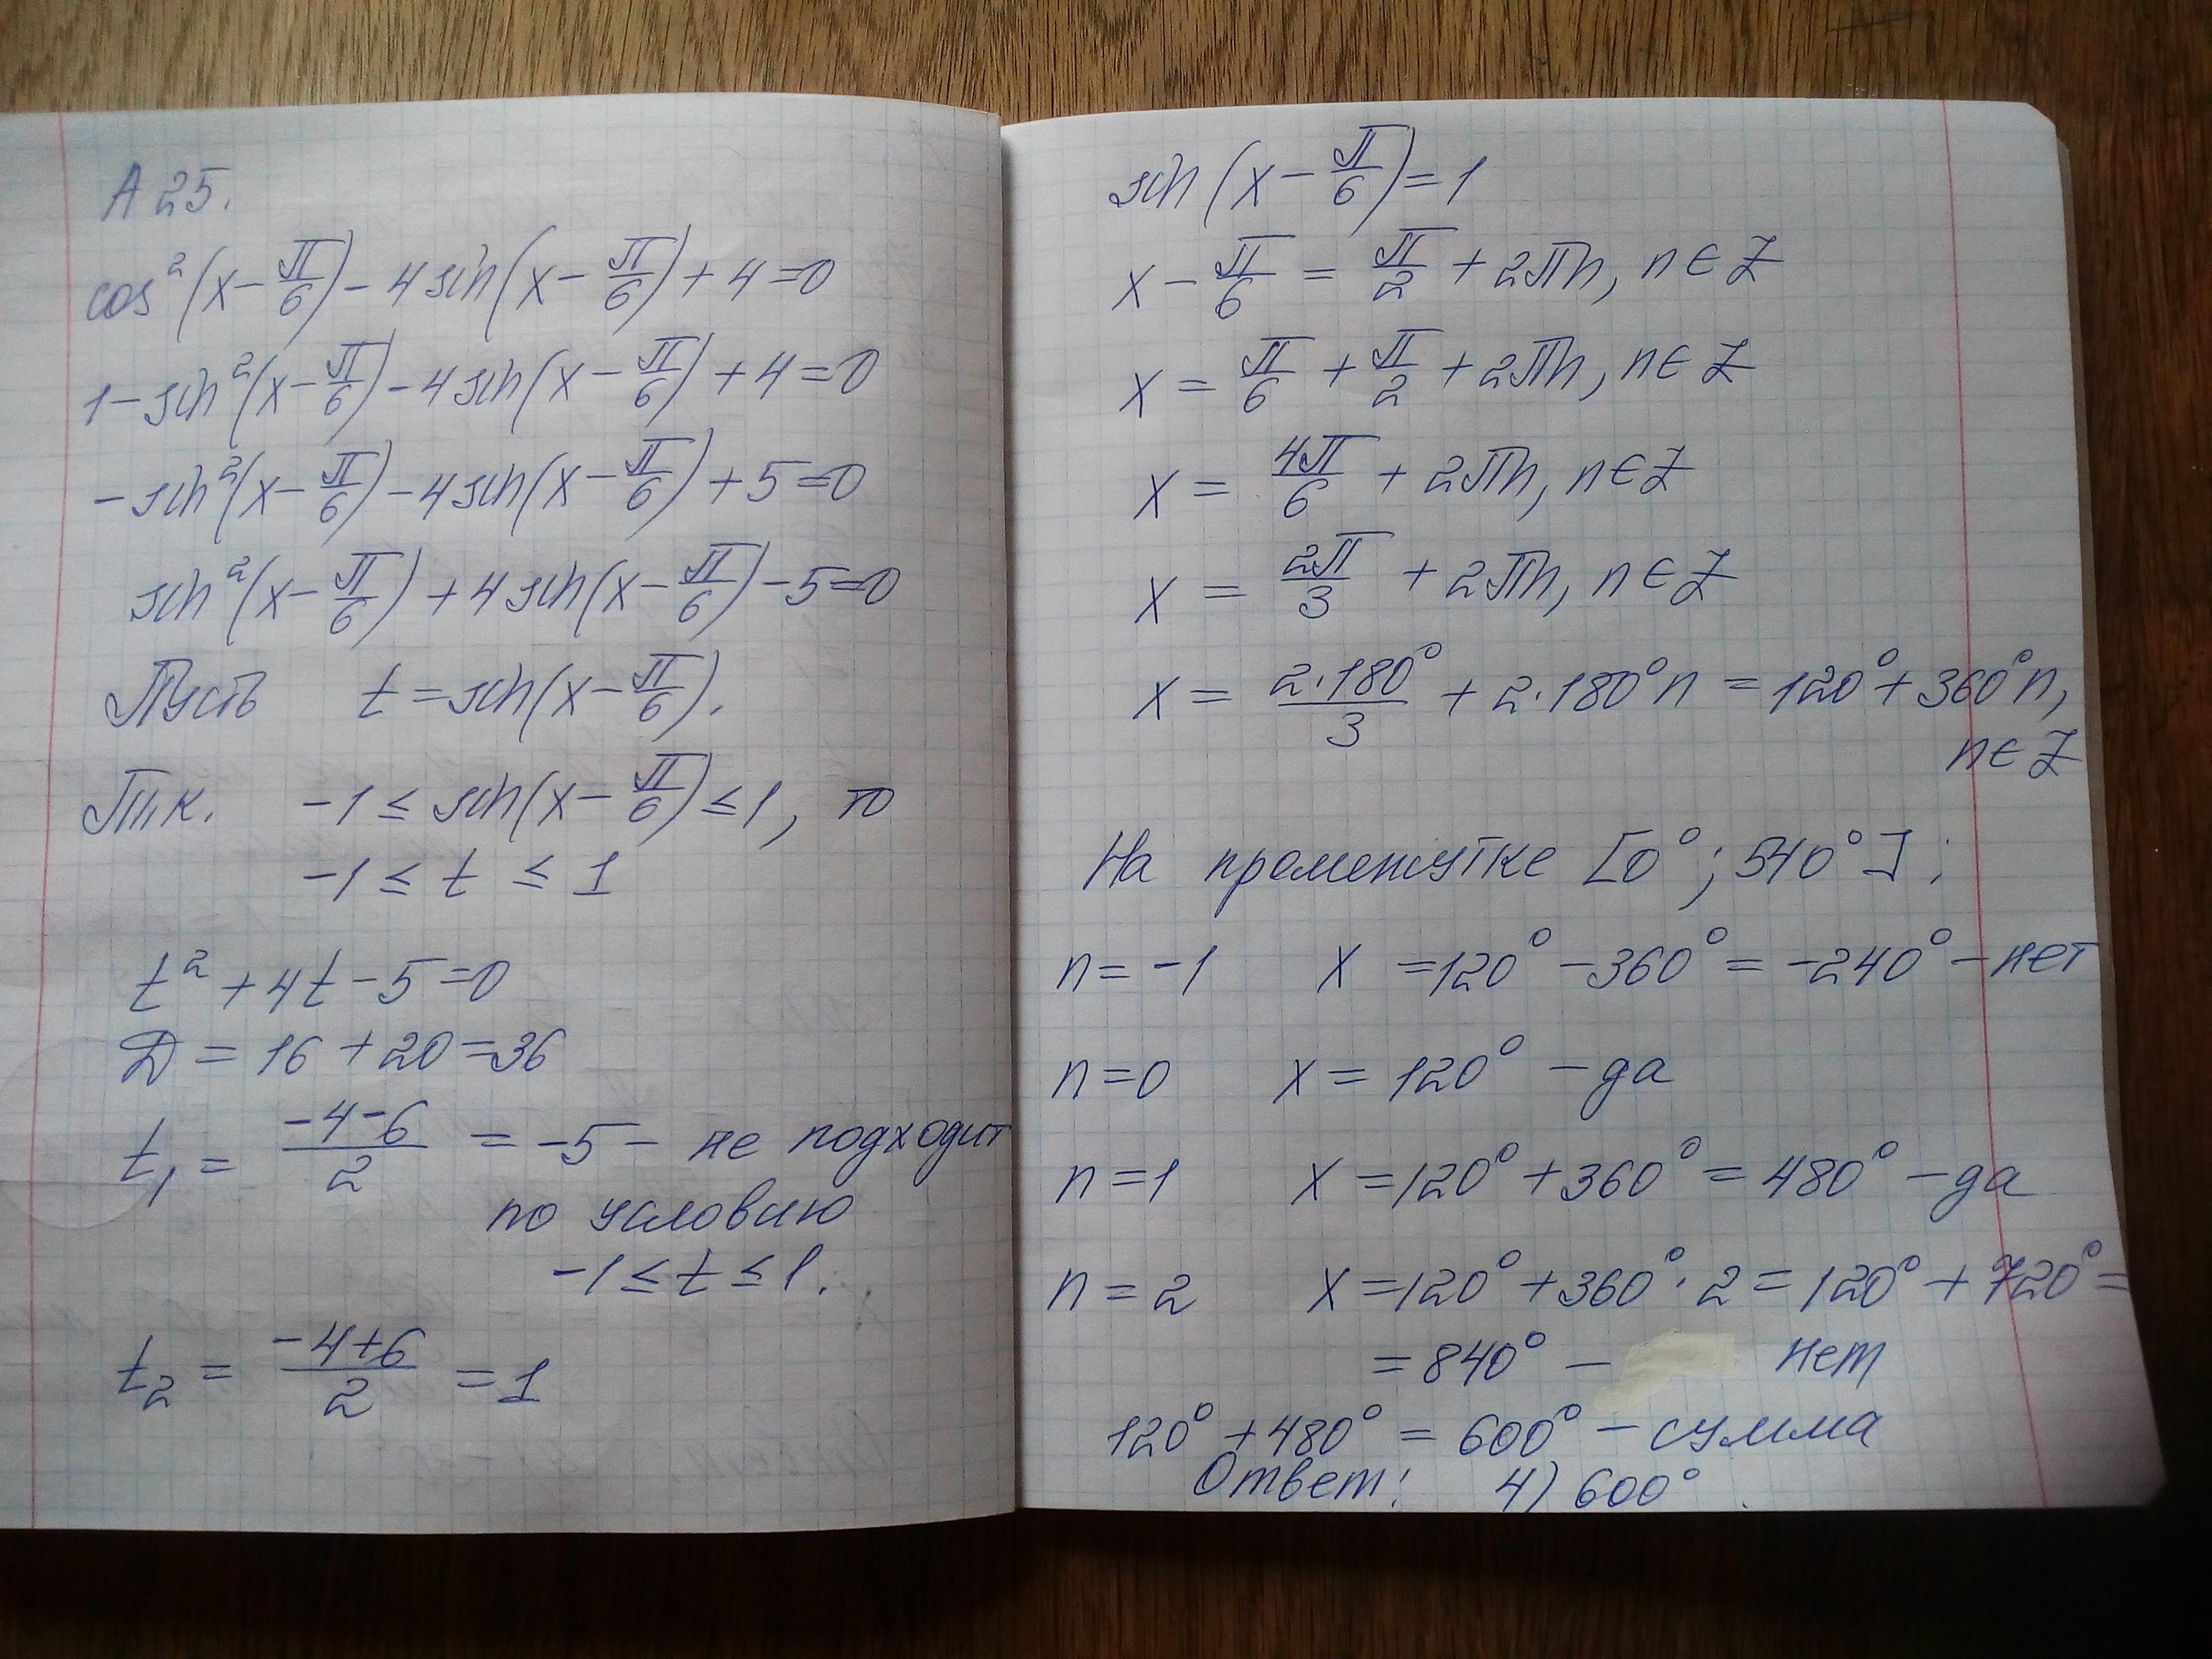 А 25.
cos²(x − π/6) − 4 sin(x − π/6) + 4 = 0
1 − sin²(x − π/6) − 4 sin(x − π/6) + 4 = 0
− sin²(x − π/6) − 4 sin(x − π/6) + 5 = 0
sin²(x − π/6) + 4 sin(x − π/6) − 5 = 0
Пусть t = sin(x − π/6).
Т.к. −1 ≤ sin(x − π/6) ≤ 1, то
−1 ≤ t ≤ 1
t² + 4t − 5 = 0
D = 16 + 20 = 36
t₁ = (−4−6)/2 = −5 − не подходит
по условию
−1 ≤ t ≤ 1.
t₂ = (−4+6)/2 = 1
sin(x − π/6) = 1
x − π/6 = π/2 + 2πn, n ∈ Z
x = π/6 + π/2 + 2πn, n ∈ Z
x = 4π/6 + 2πn, n ∈ Z
x = 2π/3 + 2πn, n ∈ Z
x = (2·180°)/3 + 2·180°n = 120° + 360°n,
n ∈ Z
На промежутке [0°; 540°]:
n = −1 x = 120° − 360° = −240° − нет
n = 0 x = 120° − да
n = 1 x = 120° + 360° = 480° − да
n = 2 x = 120° + 360°·2 = 120° + 720° =
= 840° − нет
120° + 480° = 600° − сумма
Ответ: 4) 600°.